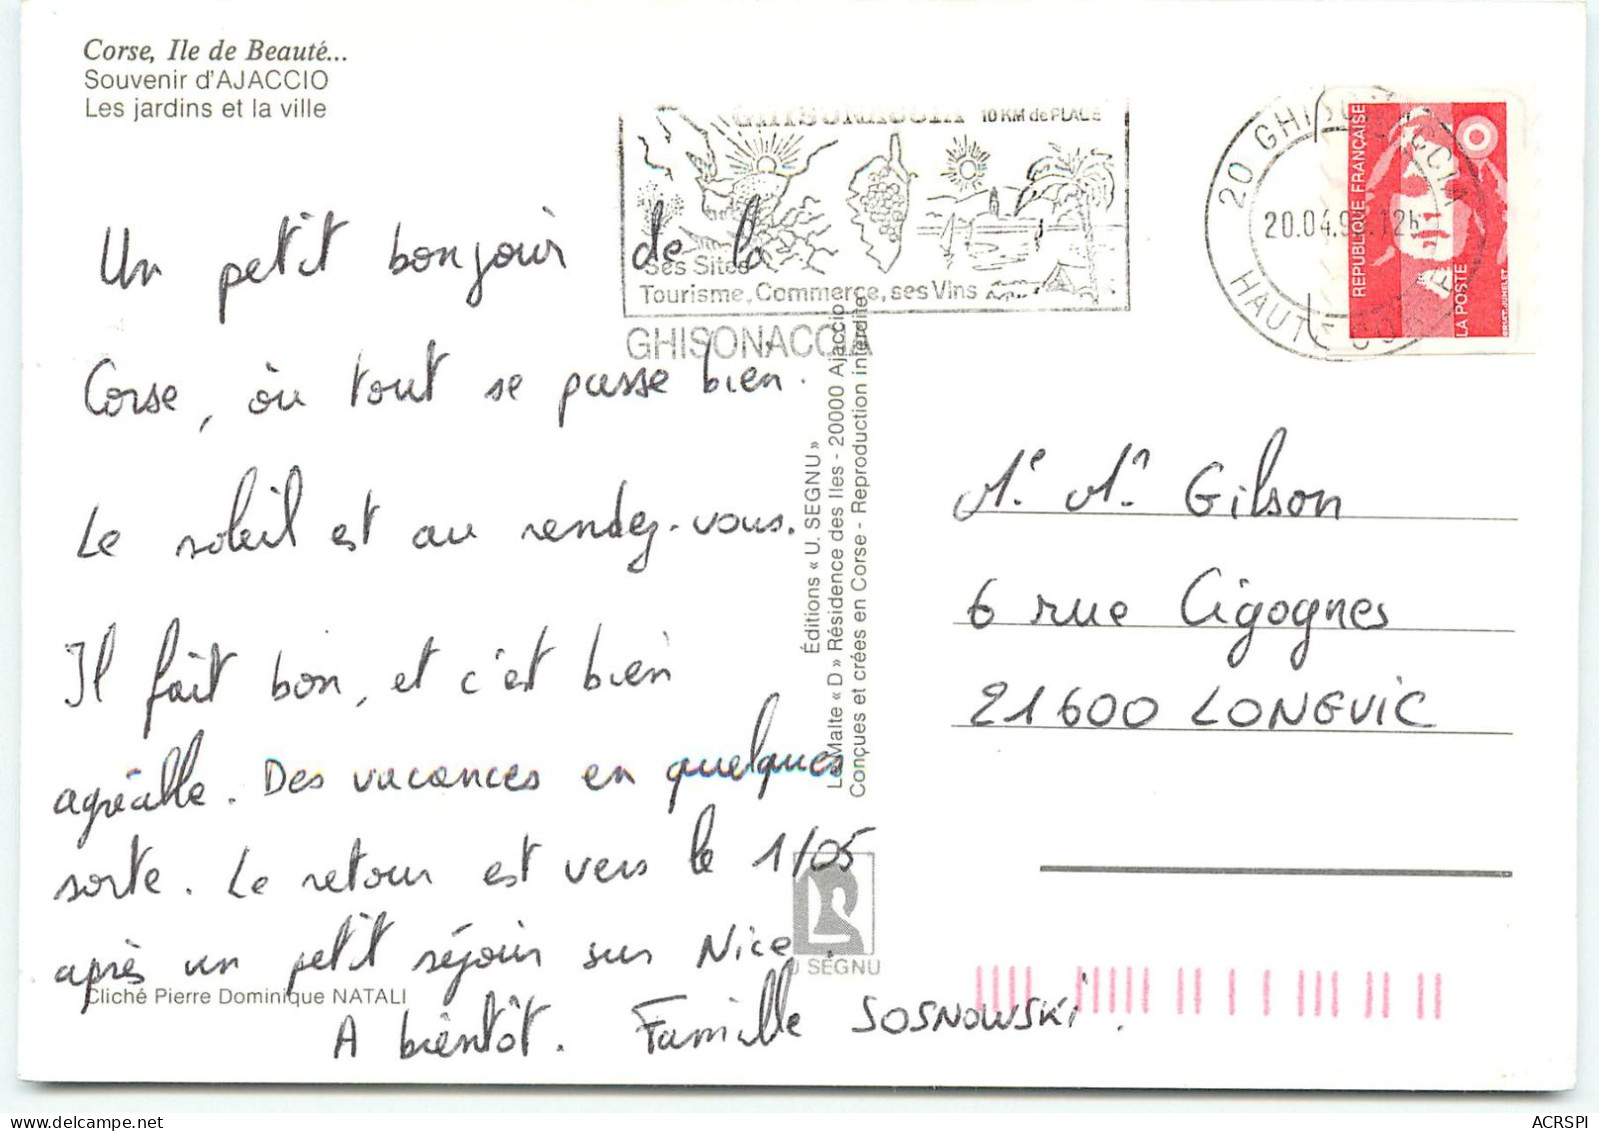 Corse, Ile de Beauté...
Souvenir d'AJACCIO
Les jardins et la ville
GHISONACCIA 10 KM de PLAGE
Ses Sites
Tourisme, Commerce, ses Vins
GHISONACCIA
20 GHISONACCIA
20.04.9 12h
HAUTE CORSE
REPUBLIQUE FRANÇAISE
LA POSTE
Un petit bonjour de la
Corse, òu tout se passe bien.
Le soleil est au rendez-vous.
Il fait bon, et c'est bien
agréable. Des vacances en quelques
sorte. Le retour est vers le 1/05
après un petit séjour sur Nice.
A bientôt. Famille SOSNOWSKI.
Éditions « U. SEGNU »
Lo Malte « D » Résidence des Iles - 20000 Ajaccio
Conçues et crées en Corse - Reproduction interdite
Me Mr Gilson
6 rue Cigognes
21600 LONGVIC
U SEGNU
Cliché Pierre Dominique NATALI
ACRSPI